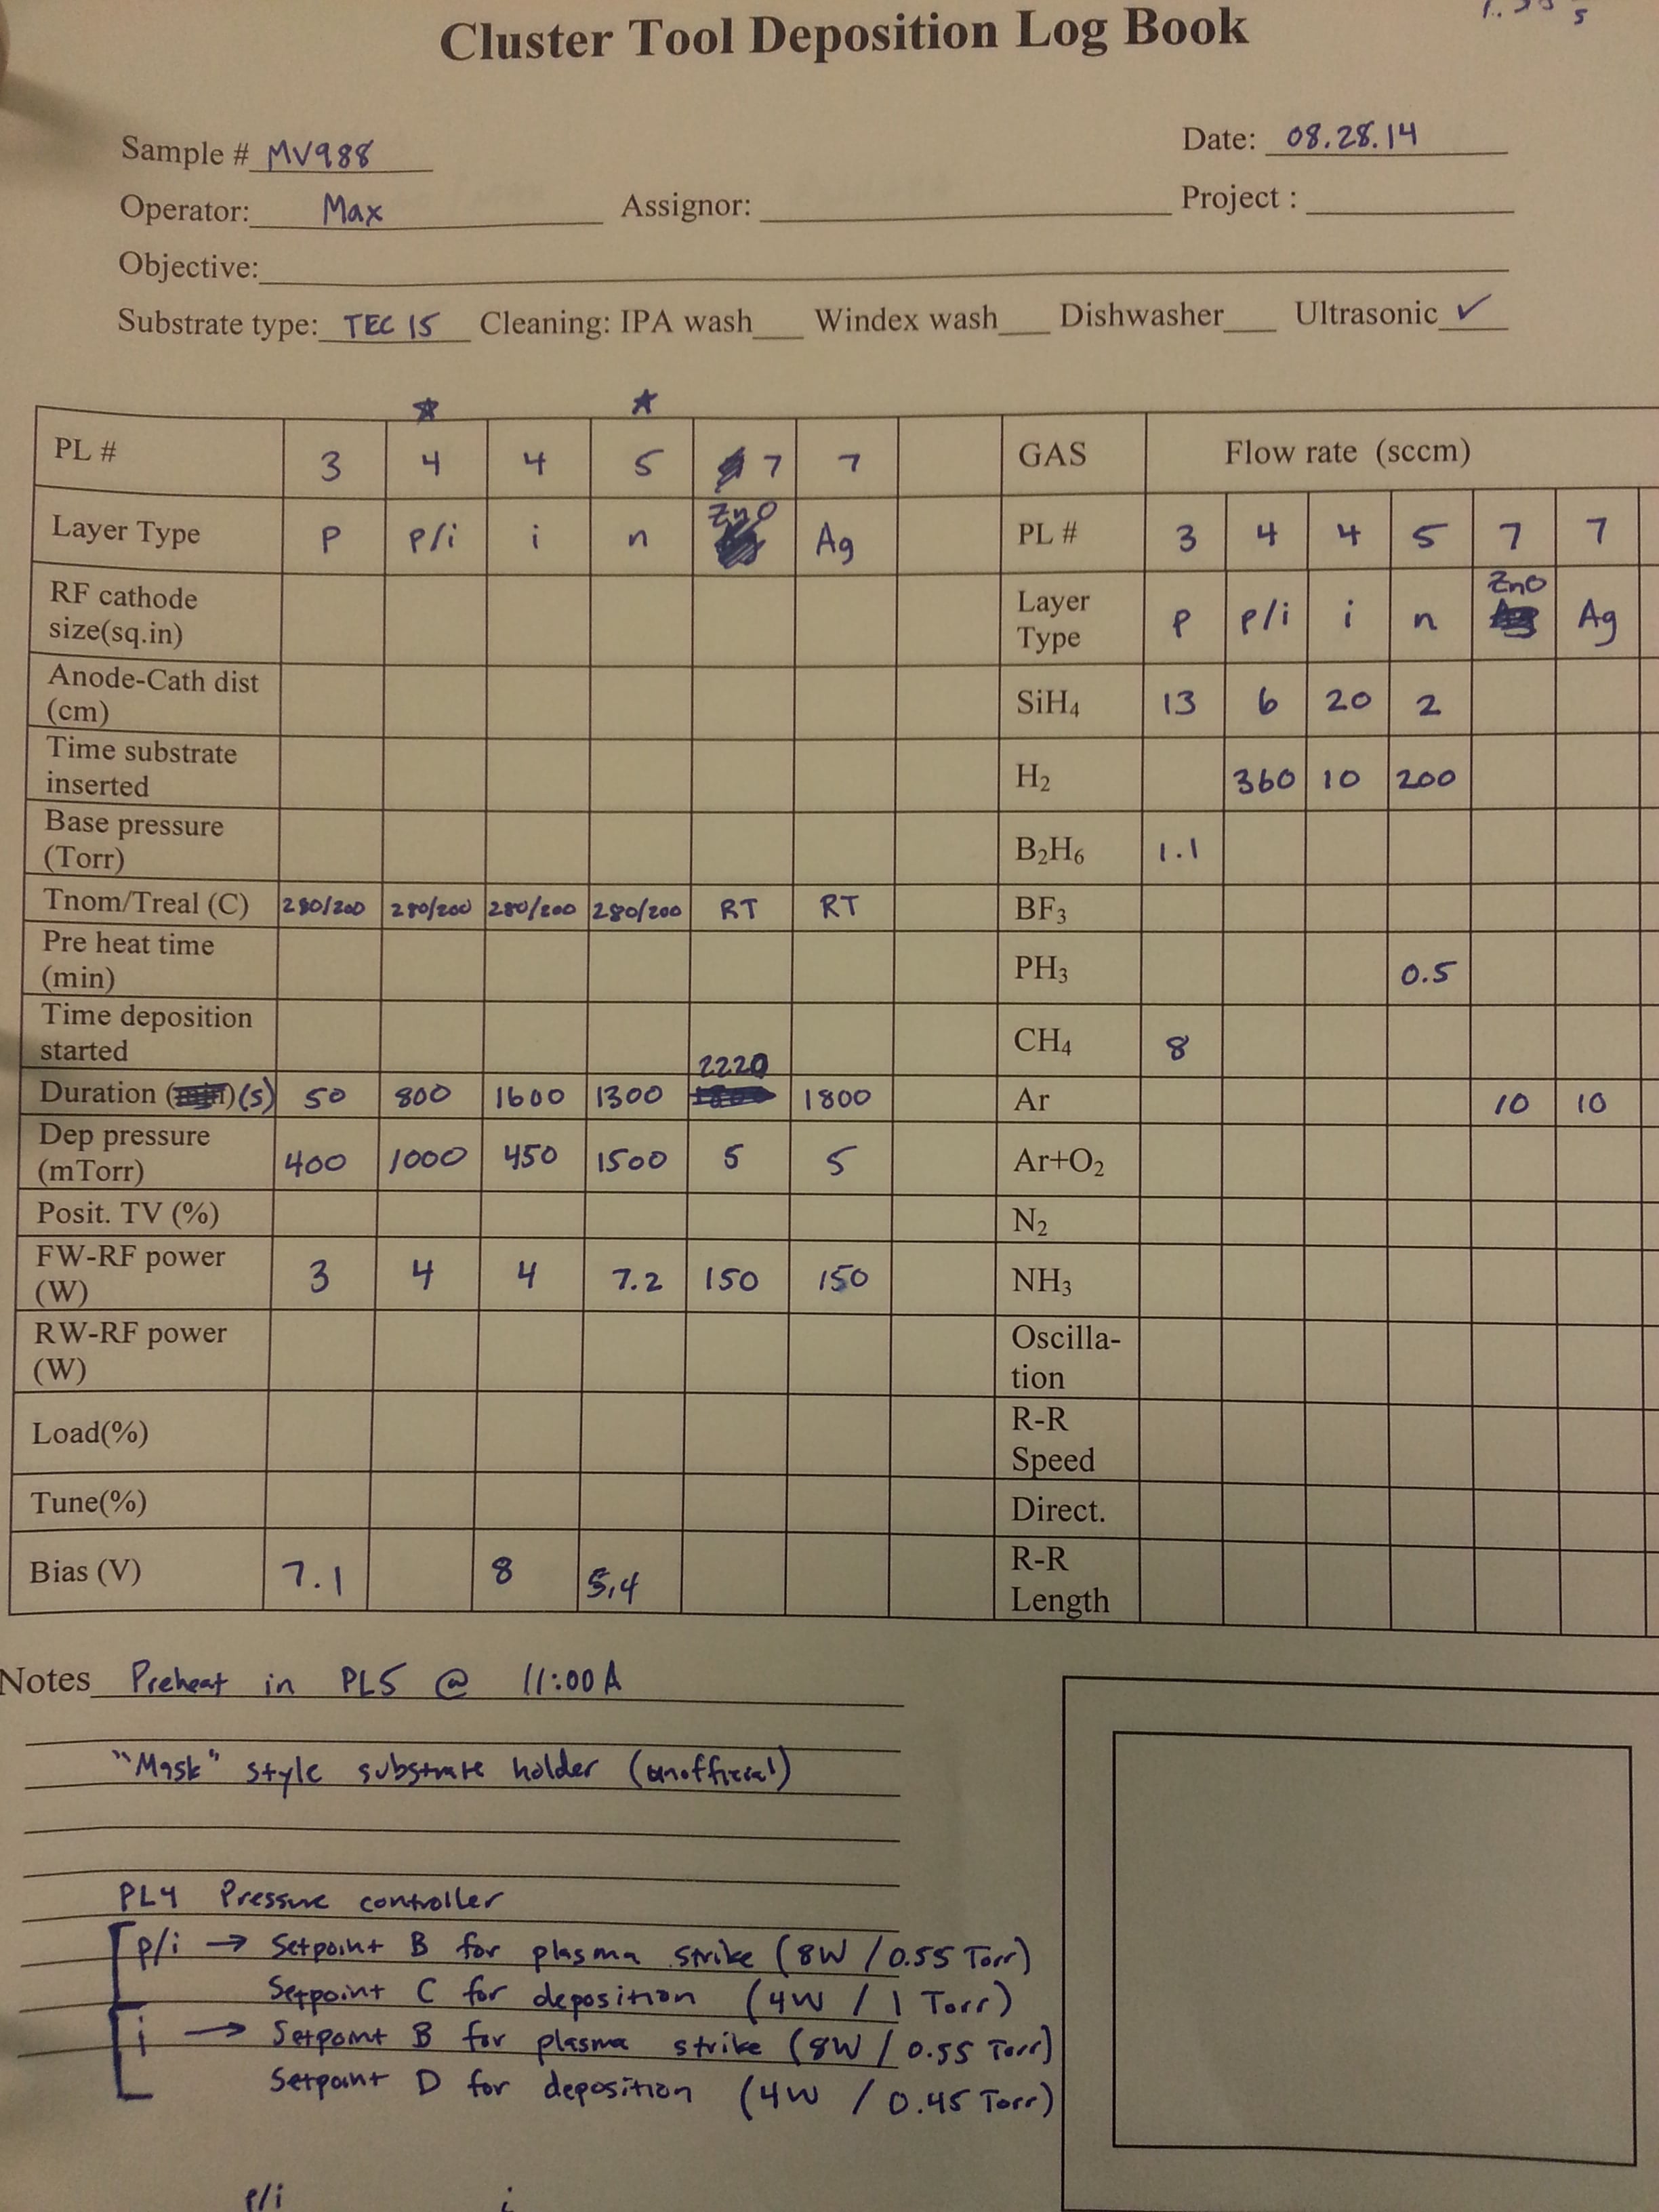 Cluster Tool Deposition Log Book
Sample # MV988 Date: 08.28.14
Operator: Max Assignor: Project :
Objective:
Substrate type: TEC 15 Cleaning: IPA wash Windex wash Dishwasher Ultrasonic ✓
PL # 3 4 4 5 7 7 GAS Flow rate (sccm)
Layer Type p p/i i n ZnO Ag PL # 3 4 4 5 7 7
RF cathode size(sq.in) Layer Type p p/i i n ZnO Ag
Anode-Cath dist (cm) SiH4 13 6 20 2
Time substrate inserted H2 360 10 200
Base pressure (Torr) B2H6 1.1
Tnom/Treal (C) 280/200 280/200 280/200 280/200 RT RT BF3
Pre heat time (min) PH3 0.5
Time deposition started CH4 8
Duration (min) (s) 50 800 1600 1300 2220 1800 Ar 10 10
Dep pressure (mTorr) 400 1000 450 1500 5 5 Ar+O2
Posit. TV (%) N2
FW-RF power (W) 3 4 4 7.2 150 150 NH3
RW-RF power (W) Oscilla-tion
Load(%) R-R Speed
Tune(%) Direct.
Bias (V) 7.1 8 5.4 R-R Length
Notes Preheat in PL5 @ 11:00 A
"Mask" style substrate holder (unofficial)
PL4 Pressure controller
p/i → Setpoint B for plasma strike (8W / 0.55 Torr)
Setpoint C for deposition (4W / 1 Torr)
i → Setpoint B for plasma strike (8W / 0.55 Torr)
Setpoint D for deposition (4W / 0.45 Torr)
p/i i